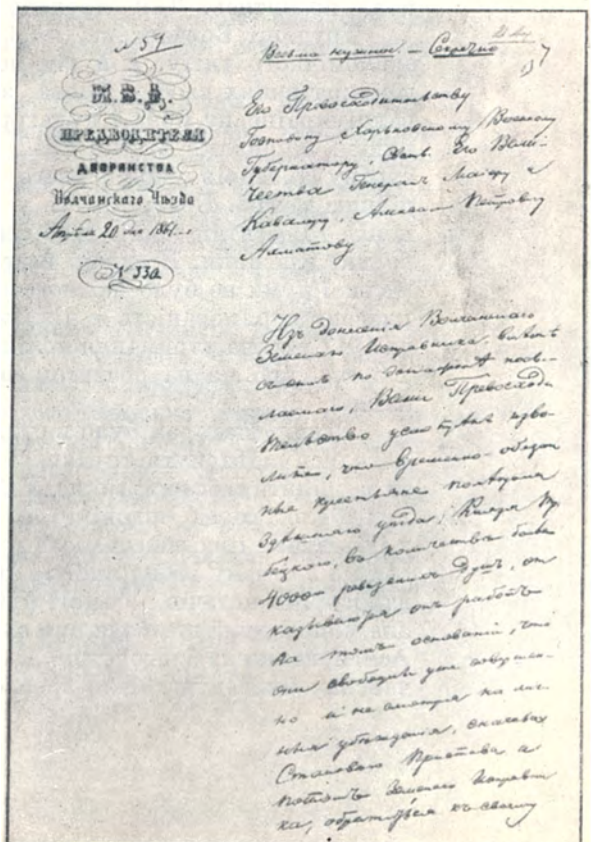 № 59
Весьма нужное. — Секретно
М. В. Д.
ПРЕДВОДИТЕЛЯ
ДВОРЯНСТВА
Волчанскаго Уѣзда
Апрѣля 20 дня 1861
№ 330
Его Превосходительству
Господину Харьковскому Военному
Губернатору, Свиты Его Вели-
чества Генералъ Маіору и
Кавалеру, Петровичу
Ахматову
Изъ донесенія Волчанскаго
Земскаго Исправника,
съ симъ по эстафетѣ посы-
лаемаго, Ваше Превосходи
тельство усмотрѣть изво-
лите, что временно-обязан
ные крестьяне помѣщика
здѣшняго уѣзда, Князя Тру
бецкого, въ количествѣ болѣе
4000 ревизскихъ душъ, от
казываются отъ работъ
на томъ основаніи, что
они свободны уже совершен-
но и не смотря на лич
ныя убѣжденія, сначала
Становаго Пристава а
потомъ Земскаго Исправни
ка, къ своему